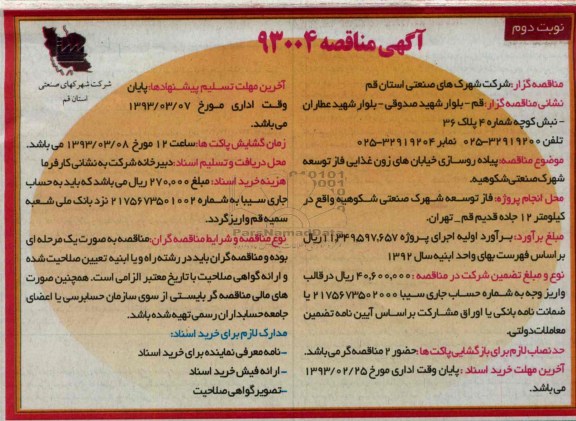 نوبت دوم
آگهی مناقصه ۹۳۰۰۴
شرکت شهرکهای صنعتی
استان قم
مناقصه گزار: شرکت شهرک های صنعتی استان قم
نشانی مناقصه گزار: قم - بلوار شهید صدوقی - بلوار شهید عطاران
- نبش کوچه شماره ۴ پلاک ۳۶
تلفن ۳۲۹۱۹۲۰۰-۰۲۵ نمابر ۳۲۹۱۹۲۰۴-۰۲۵
موضوع مناقصه: پیاده روسازی خیابان های زون غذایی فاز توسعه
شهرک صنعتی شکوهیه.
محل انجام پروژه: فاز توسعه شهرک صنعتی شکوهیه واقع در
کیلومتر ۱۲ جاده قدیم قم_ تهران.
مبلغ برآورد: برآورد اولیه اجرای پروژه ۱۱/۳۴۹/۵۹۷,۶۵۷ ریال
بر اساس فهرست بهای واحد ابنیه سال ۱۳۹۲
نوع و مبلغ تضمین شرکت در مناقصه: ۴۰,۶۰۰,۰۰۰ ریال در قالب
واریز وجه به شماره حساب جاری سیبا ۲۱۷۵۶۷۳۵۰۲۰۰۰ یا
ضمانت نامه بانکی یا اوراق مشارکت بر اساس آیین نامه تضمین
معاملات دولتی.
حد نصاب لازم برای بازگشایی پاکت ها: حضور ۲ مناقصه گر می باشد.
آخرین مهلت خرید اسناد: پایان وقت اداری مورخ ۱۳۹۳/۰۲/۲۵
می باشد.
آخرین مهلت تسلیم پیشنهادها: پایان
وقت اداری مورخ ۱۳۹۳/۰۳/۰۷
می باشد.
زمان گشایش پاکت ها: ساعت ۱۲ مورخ ۱۳۹۳/۰۳/۰۸ می باشد.
محل دریافت و تسلیم اسناد: دبیرخانه شرکت به نشانی کارفرما
هزینه خرید اسناد: مبلغ ۲۷۰,۰۰۰ ریال می باشد که باید به حساب
جاری سیبا به شماره ۲۱۷۵۶۷۳۵۰۱۰۰۲ نزد بانک ملی شعبه
سمیه قم واریز گردد.
نوع مناقصه و شرایط مناقصه گران: مناقصه به صورت یک مرحله ای
بوده و مناقصه گران باید در رشته راه و یا ابنیه تعیین صلاحیت شده
و ارائه گواهی صلاحیت با تاریخ معتبر الزامی است. همچنین صورت
های مالی مناقصه گر بایستی از سوی سازمان حسابرسی یا اعضای
جامعه حسابداران رسمی تهیه شده باشد.
مدارک لازم برای خرید اسناد:
-نامه معرفی نماینده برای خرید اسناد
-ارائه فیش خرید اسناد
-تصویر گواهی صلاحیت
ParsNamadData